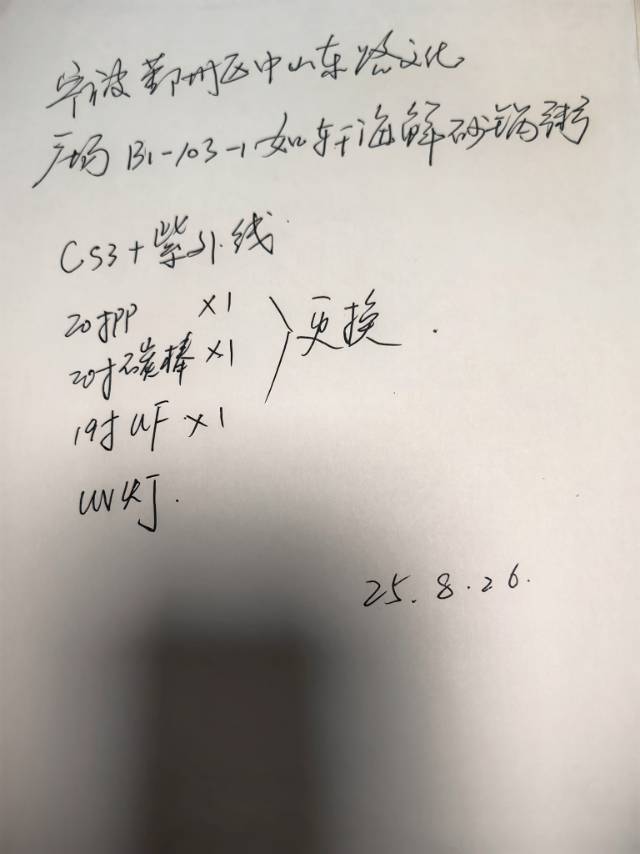 宁波鄞州区中山东路文化
广场B1-103-1如轩海鲜砂锅粥
CS3+紫外线
20寸PP ×1
20寸碳棒 ×1 更换.
19寸UF ×1
UV灯.
25.8.26.